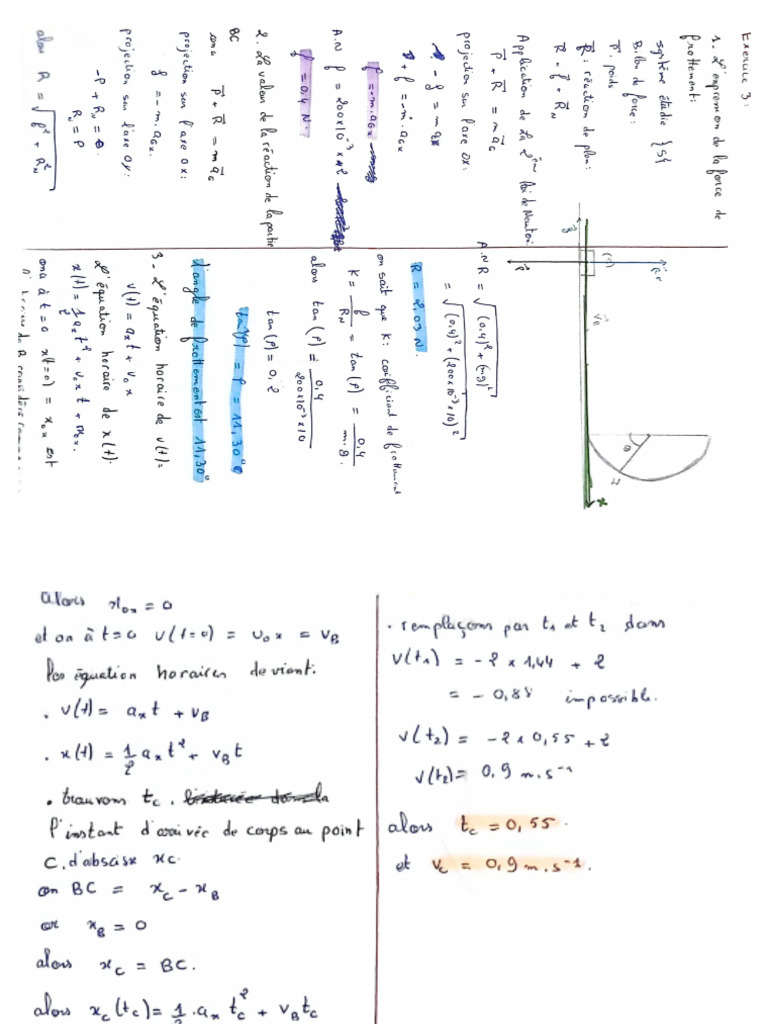 Exercice 3:
1. L'expression de la force de
frottement:
système étudié {S}
Bilan de force:
P⃗: poids
R⃗: réaction de plan:
R⃗ = f⃗ + R⃗N
Application de la 2ème loi de Newton:
P⃗ + R⃗ = m a⃗G
projection sur l'axe ox:
- f = m ax
f = -m.aGx
A.N f = 200x10⁻³ x 2
f = 0,4 N.
2. La valeur de la réaction de la partie
BC
ona P⃗ + R⃗ = m a⃗G
projection sur l'axe ox:
f = -m.aGx.
projection sur l'axe oy:
-P + RN = 0
RN = P
alors R = √(f² + RN²)
A.N R = √((0,4)² + (mg)²)
= √((0,4)² + (200x10⁻³x10)²)
R = 2,03 N.
on sait que K: coefficient de frottement
K = f/RN = tan(φ) = 0,4/m.g.
alors tan(φ) = 0,4/200x10⁻³x10
tan(φ) = 0,2
tan⁻¹(φ) = φ = 11,30°
L'angle de frottement est 11,30°
3 - L'équation horaire de v(t)=
v(t) = ax t + v0x
L'équation horaire de x(t):
x(t) = 1/2 ax t² + v0x t + x0x.
ona à t=0 x(t=0) = x0x est
alors x0x = 0
et on à t=0 v(t=0) = v0x = vB
Les équation horaires devient:
. v(t) = ax t + vB
. x(t) = 1/2 ax t² + vB t
. trouvons tc.
l'instant d'arrivée de corps au point
C. d'abscisx xc.
on BC = xC - xB
or xB = 0
alors xC = BC.
alors xC(tC) = 1/2 .ax tC² + vB tC
. remplaçons par t1 et t2 dans
v(t1) = -2 x 1,44 + 2
= - 0,88 impossible.
v(t2) = -2 x 0,55 + 2
v(t2) = 0,9 m.s⁻¹
alors tc = 0,55.
et vc = 0,9 m.s⁻¹.